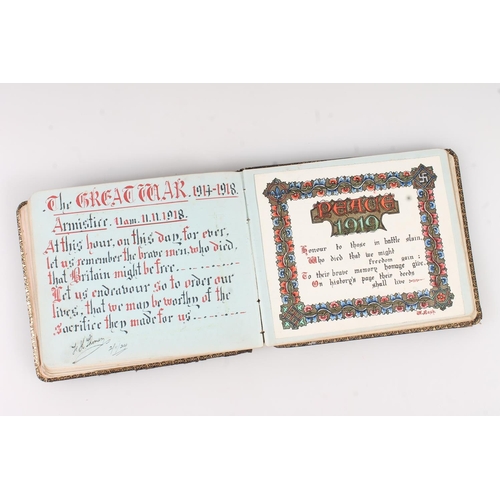 The GREAT WAR. 1914-1918.
Armistice. 11am. 11.11.1918.
At this hour, on this day, for ever,
let us remember the brave men, who died,
that Britain might be free.
Let us endeavour so to order our
lives, that we may be worthy of the
sacrifice they made for us
PEACE
1919
Honour to those in battle slain,
Who died that we might
freedom gain;
To their brave memory homage give,
On history's page their deeds
shall live